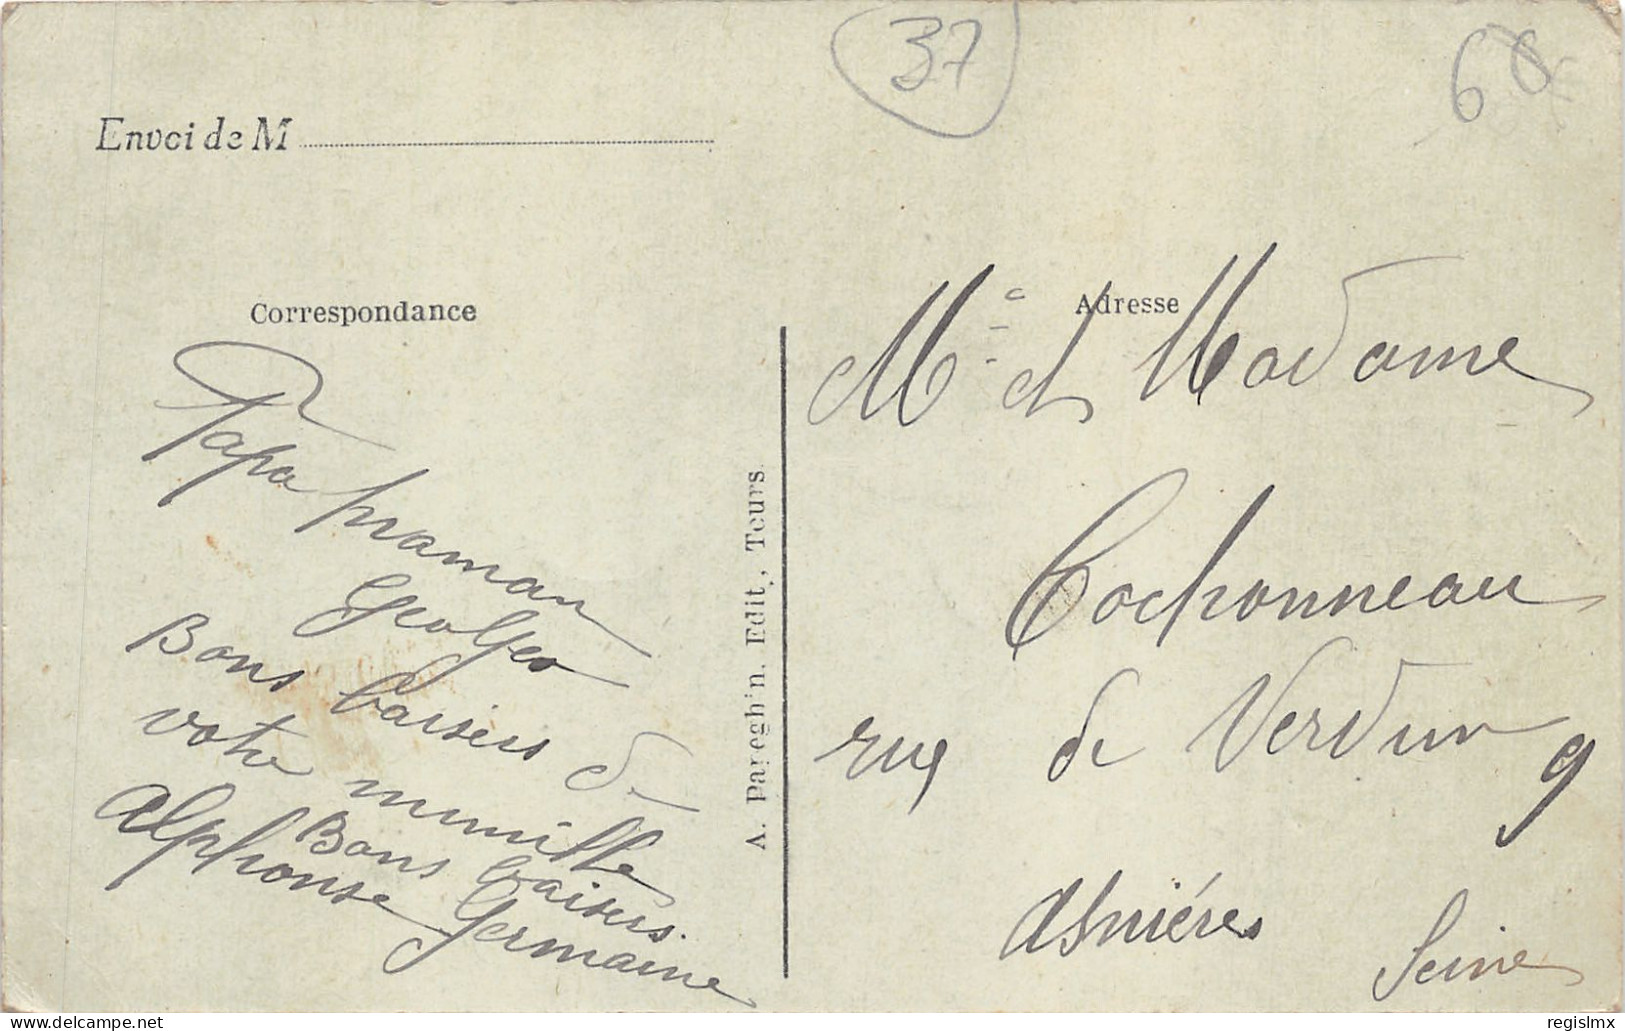 37
66
Envoi de M
Correspondance
Papa maman
Georges
Bons baisers de
votre mimille
Bons baisers
Alphonse Germaine
A. Pareghin. Edit., Tours.
Adresse
Mr et Madame
Cochonneau
rue de Verdun 9
Asnières
Seine
regislmx